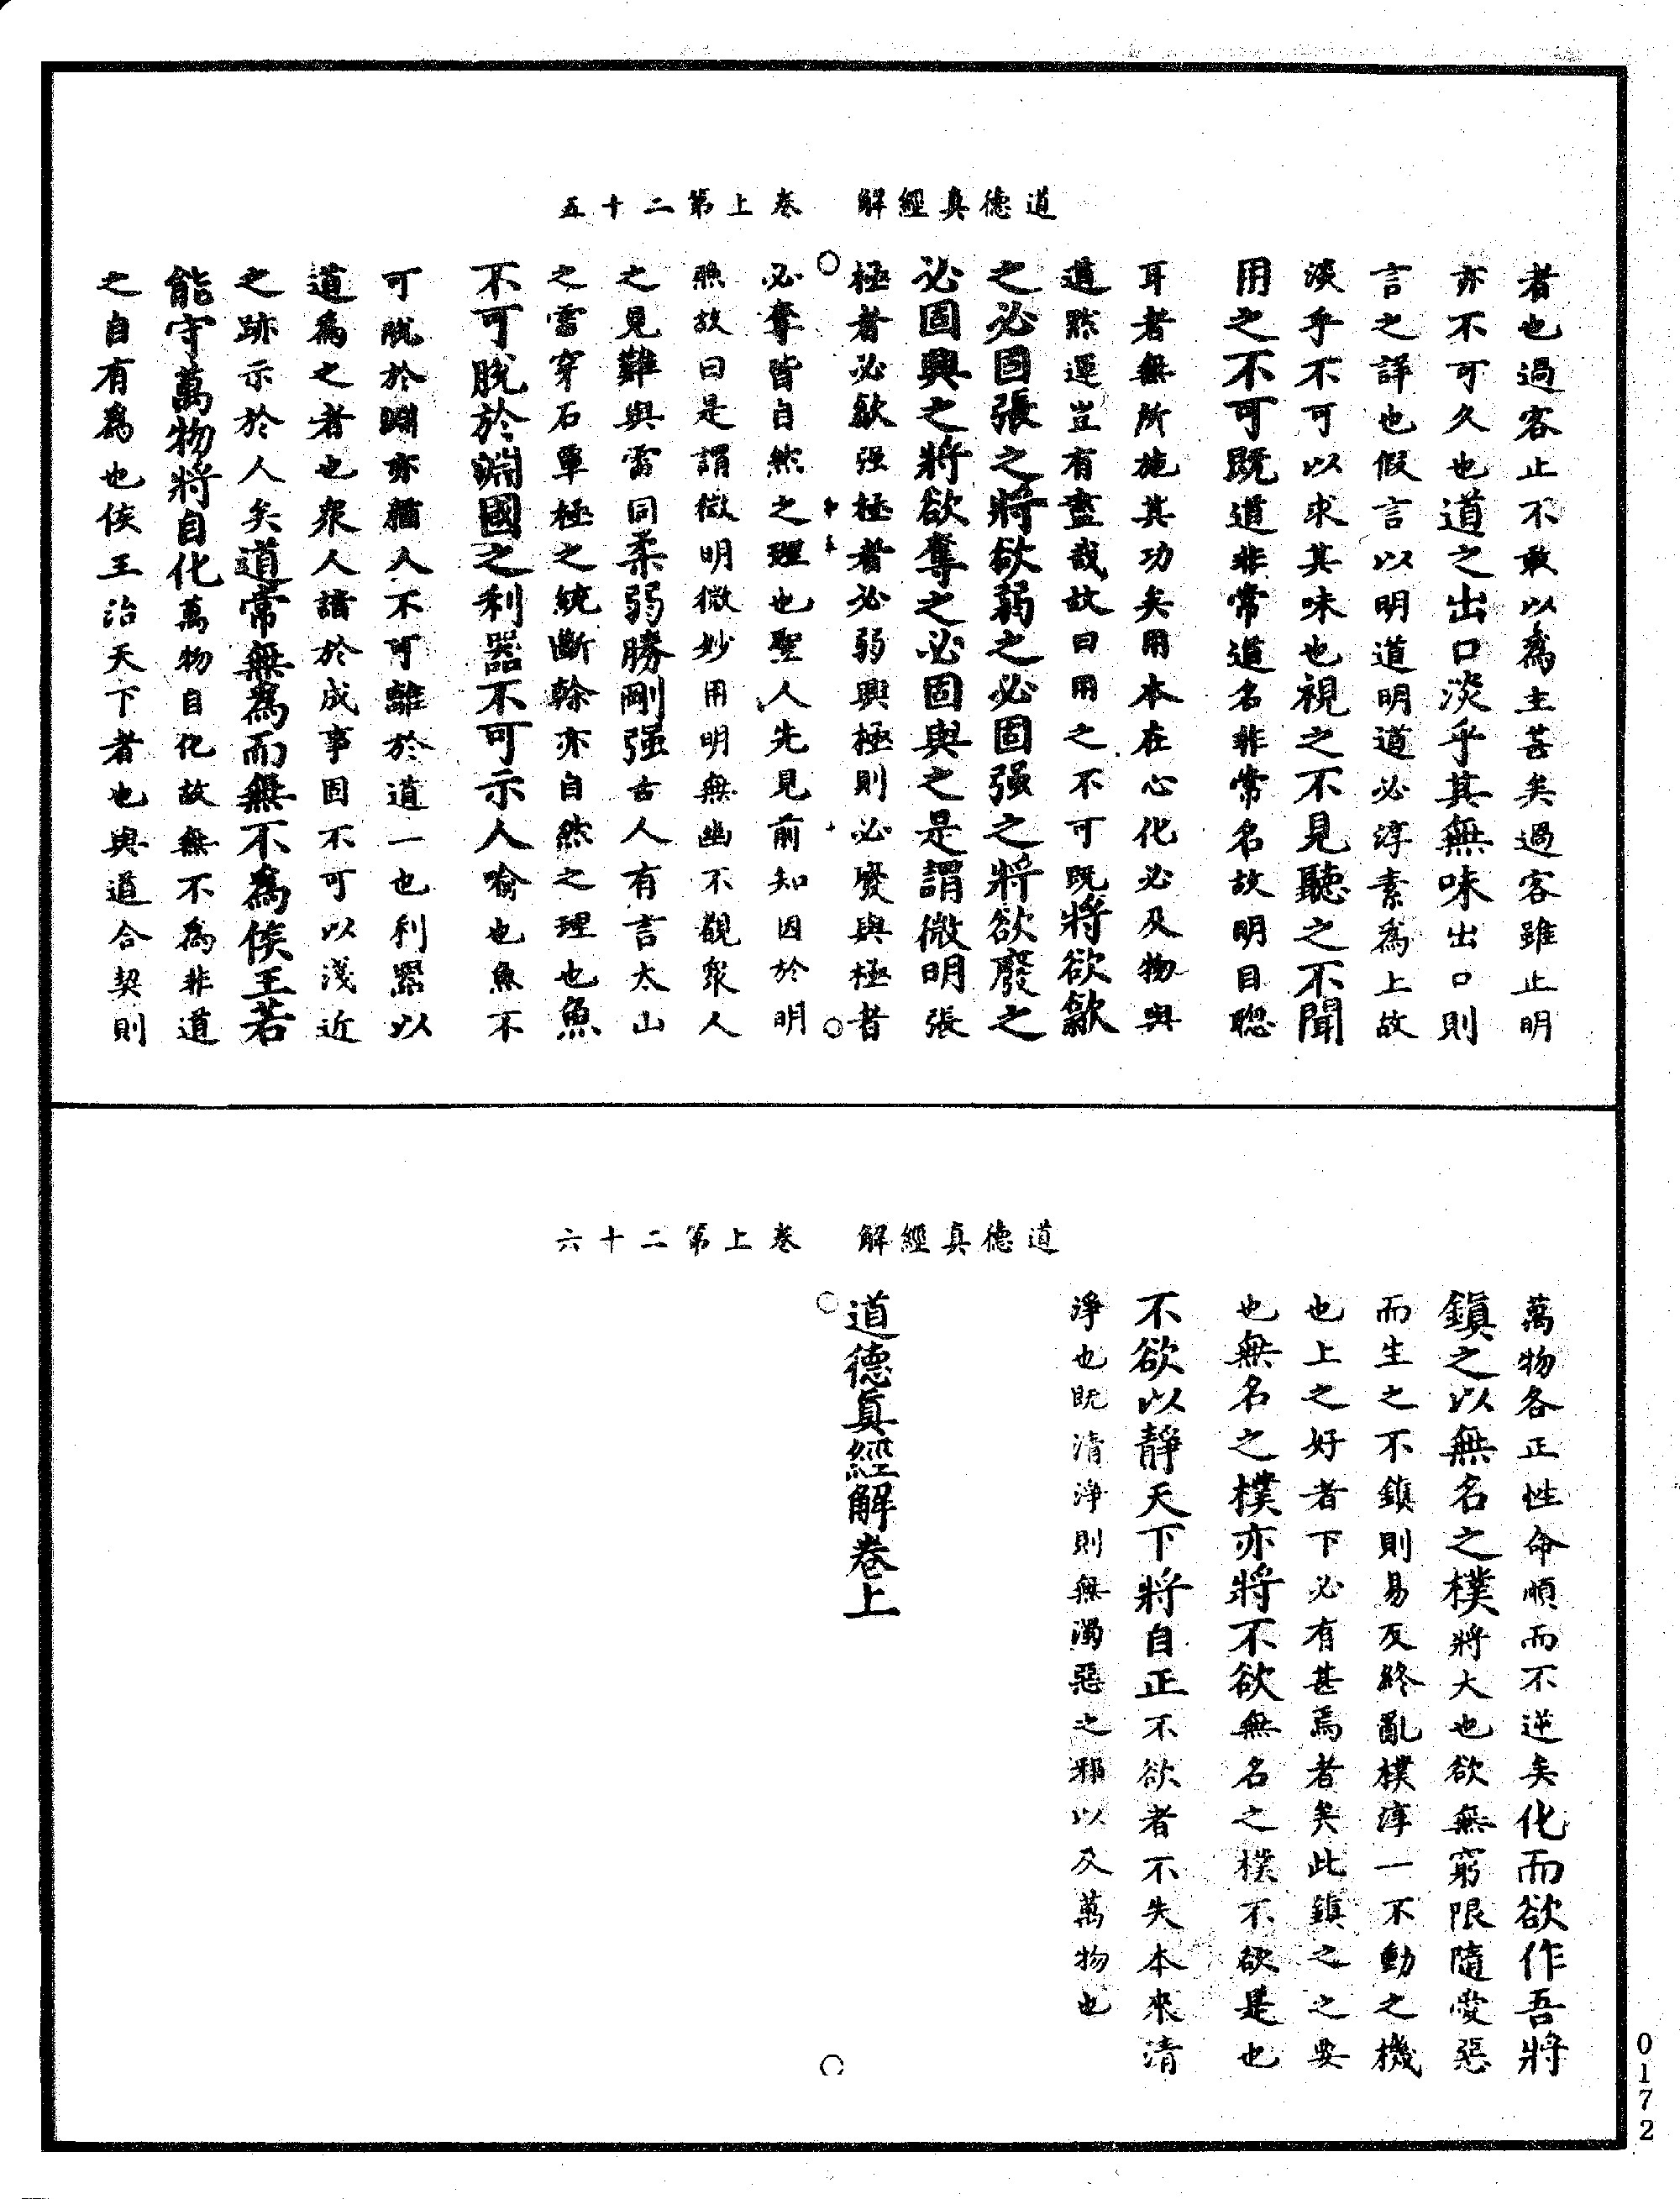 道德真經解　卷上第二十五
者也過客止不敢以為主苦矣過客雖止明
亦不可久也道之出口淡乎其無味出口則
言之詳也假言以明道明道必淳素為上故
淡乎不可以求其味也視之不見聽之不聞
用之不可既道非常道名非常名故明目聰
耳者無所施其功矣用本在心化必及物與
道默運豈有盡哉故曰用之不可既將欲歙
之必固張之將欲弱之必固强之將欲廢之
必固興之將欲奪之必固與之是謂微明張
極者必歙强極者必弱興極則必廢與極者
必奪皆自然之理也聖人先見前知因於明
無故曰是謂微明微妙用明無幽不觀衆人
之見難與雷同柔弱勝剛强古人有言太山
之霤穿石單極之統斷幹亦自然之理也魚
不可脫於淵國之利器不可示人喻也魚不
可脫於淵亦猶人不可離於道一也利器以
道為之者也衆人諳於成事固不可以淺近
之跡示於人矣道常無為而無不為侯王若
能守萬物將自化萬物自化故無不為非道
之自有為也侯王治天下者也與道合契則
道德真經解　卷上第二十六
萬物各正性命順而不逆矣化而欲作吾將
鎮之以無名之樸將大也欲無窮限隨愛惡
而生之不鎮則易反終亂樸淳一不動之機
也上之好者下必有甚焉者矣此鎮之之要
也無名之樸亦將不欲無名之樸不欲是也
不欲以靜天下將自正不欲者不失本來清
淨也既清淨則無濁惡之邪以及萬物也
道德真經解卷上
0172